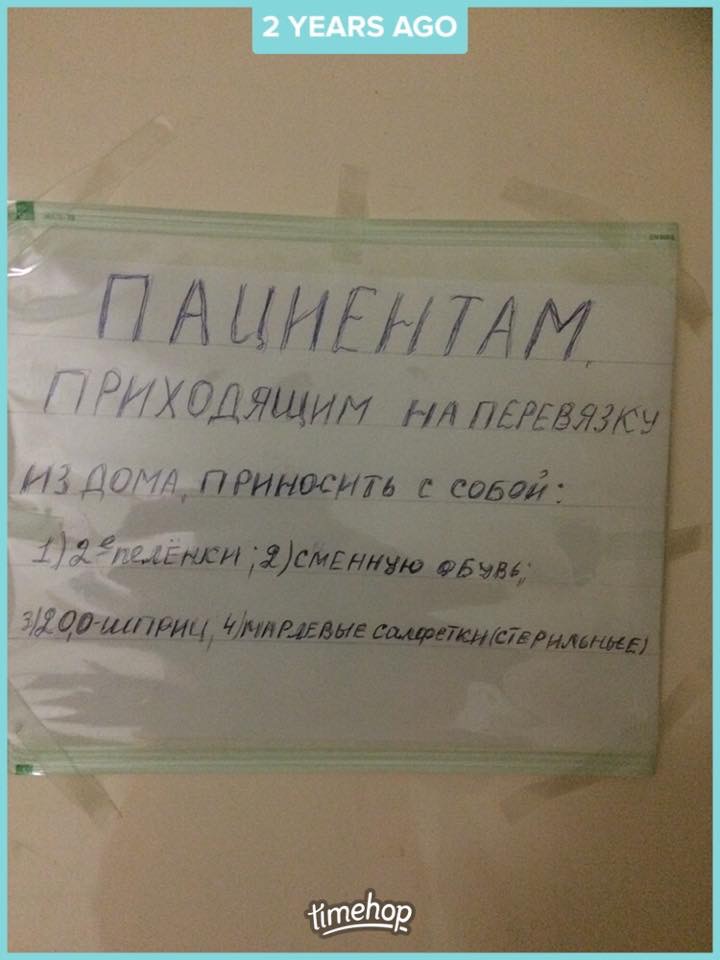 2 YEARS AGO
ПАЦИЕНТАМ,
ПРИХОДЯЩИМ НА ПЕРЕВЯЗКУ
ИЗ ДОМА, ПРИНОСИТЬ С СОБОЙ:
1) 2е пелёнки; 2) СМЕННУЮ ОБУВЬ;
3) 20,0-ШПРИЦ, 4) МАРЛЕВЫЕ САЛФЕТКИ (СТЕРИЛЬНЫЕ)
timehop